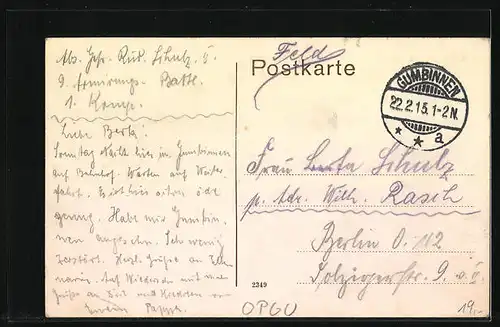 Abs. Gefr. Rud. Schulz 5.
9. Armirungs-Batl.
1. Komp.
Liebe Berta!
Sonntag Nacht hier in Gumbinnen
auf Bahnhof. Warten auf Weiter-
fahrt. Es ist hier schon öde
genug. Habe mir Gumbin-
nen angesehn. Ist wenig
zerstört. Herzl. Grüße an
Auf Wiedersehn mit
Grüßen an Dich und
Pappa
Feld
Postkarte
GUMBINNEN
22.2.15.1-2N.
* * a
Frau Berta Schulz
p. Adr. Wilh. Rasch
Berlin O. 112
Dolzigerstr. 9
2349
OPGU
19,-